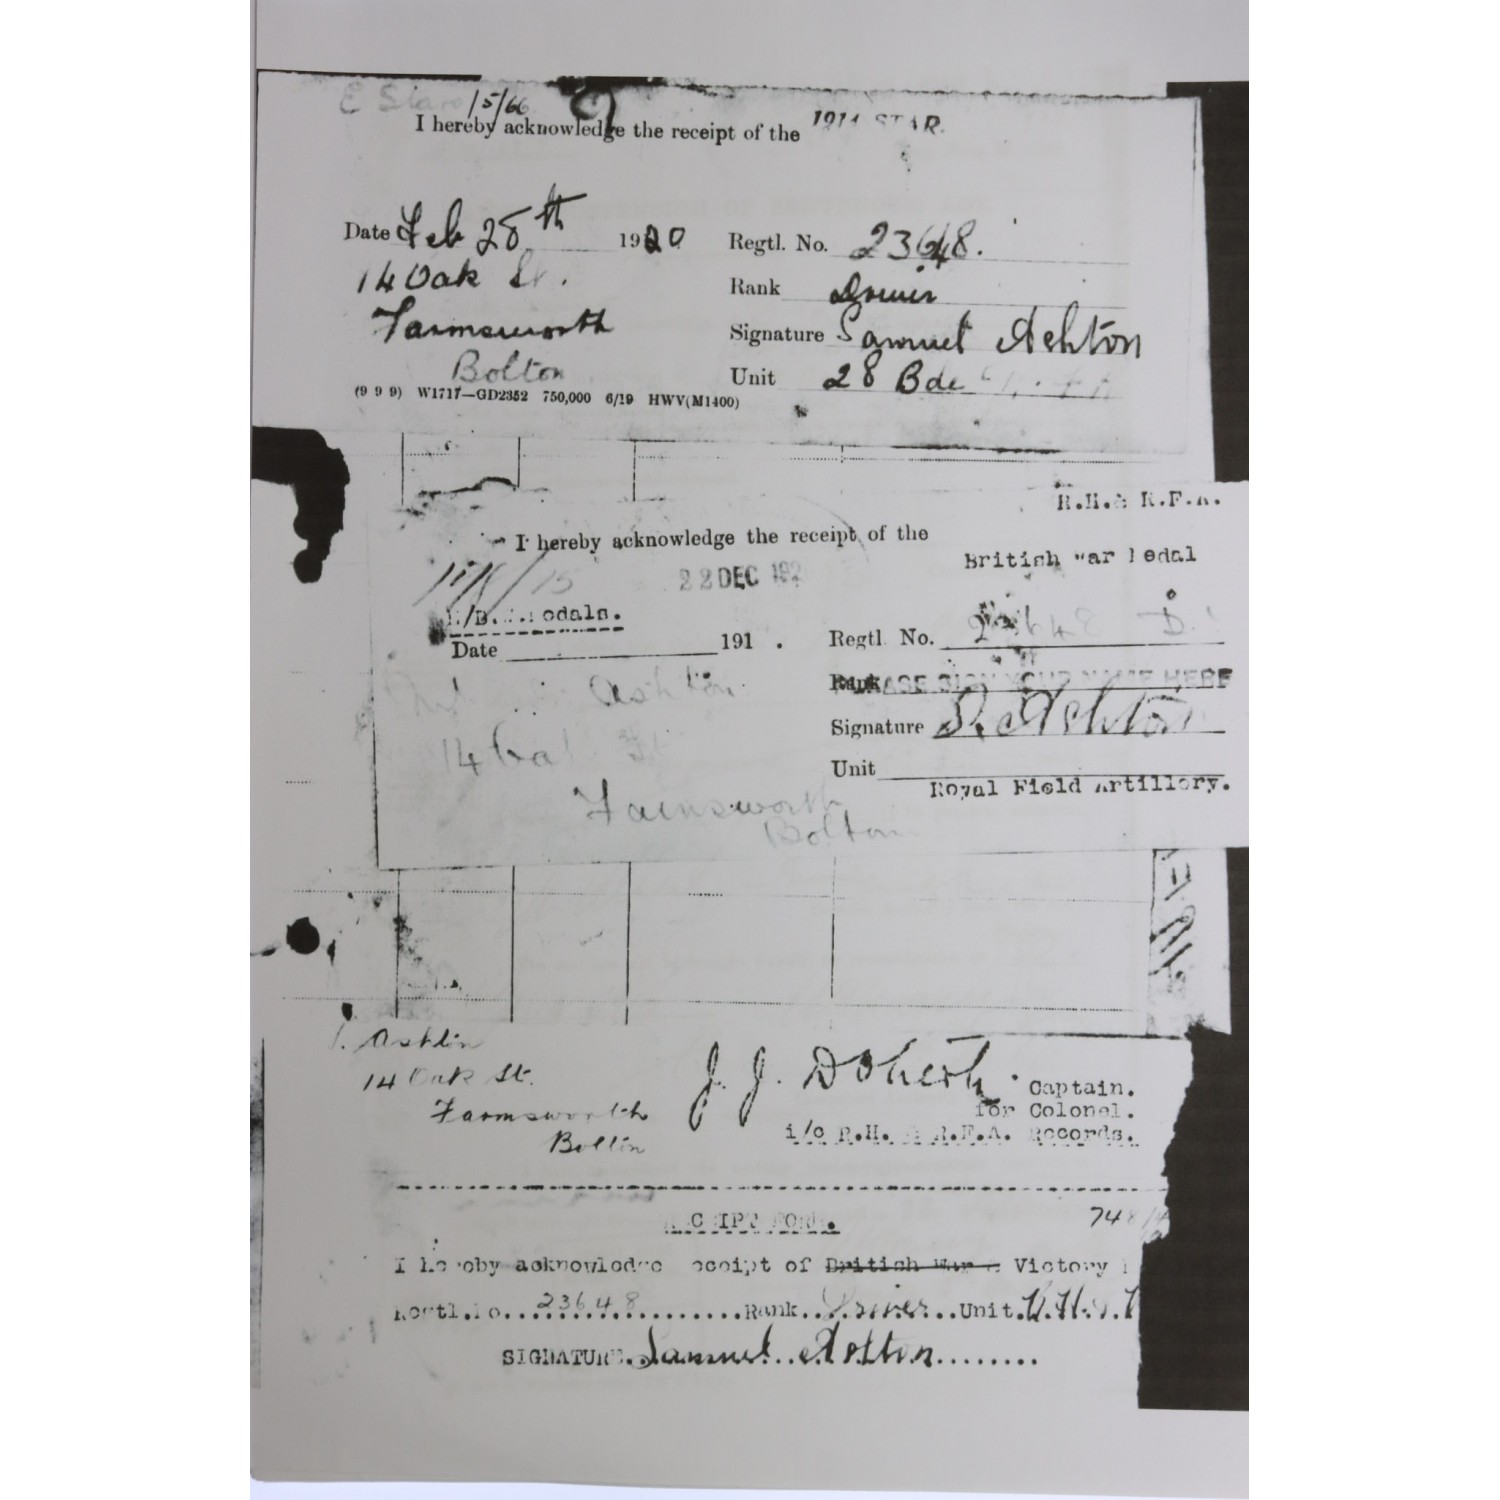 E Star 15/66
I hereby acknowledge the receipt of the 1914 STAR.
Date Feb 28th 1920 Regtl. No. 23648.
14 Oak St.
Rank Driver
Farnsworth
Signature Samuel Ashton
Bolton
Unit 28 Bde
(9 9 9) W1717—GD2352 750,000 6/19 HWV(M1400)
R.H. & R.F.A.
I hereby acknowledge the receipt of the
British War Medal
22 DEC 192
Medals.
Date 191 . Regtl. No. 23648 D
Rank PLEASE SIGN YOUR NAME HERE
Ashton
Signature S. Ashton
14 Oak St
Unit
Royal Field Artillery.
Farnsworth
Bolton
S. Ashton
14 Oak St.
J. J. Doherty. Captain.
Farnsworth
for Colonel.
Bolton
i/c R.H. & R.F.A. Records.
RECEIPT FORM.
748/
I hereby acknowledge receipt of British War & Victory
Regtl.No. 23648 Rank Driver Unit. R.H. &
SIGNATURE. Samuel Ashton